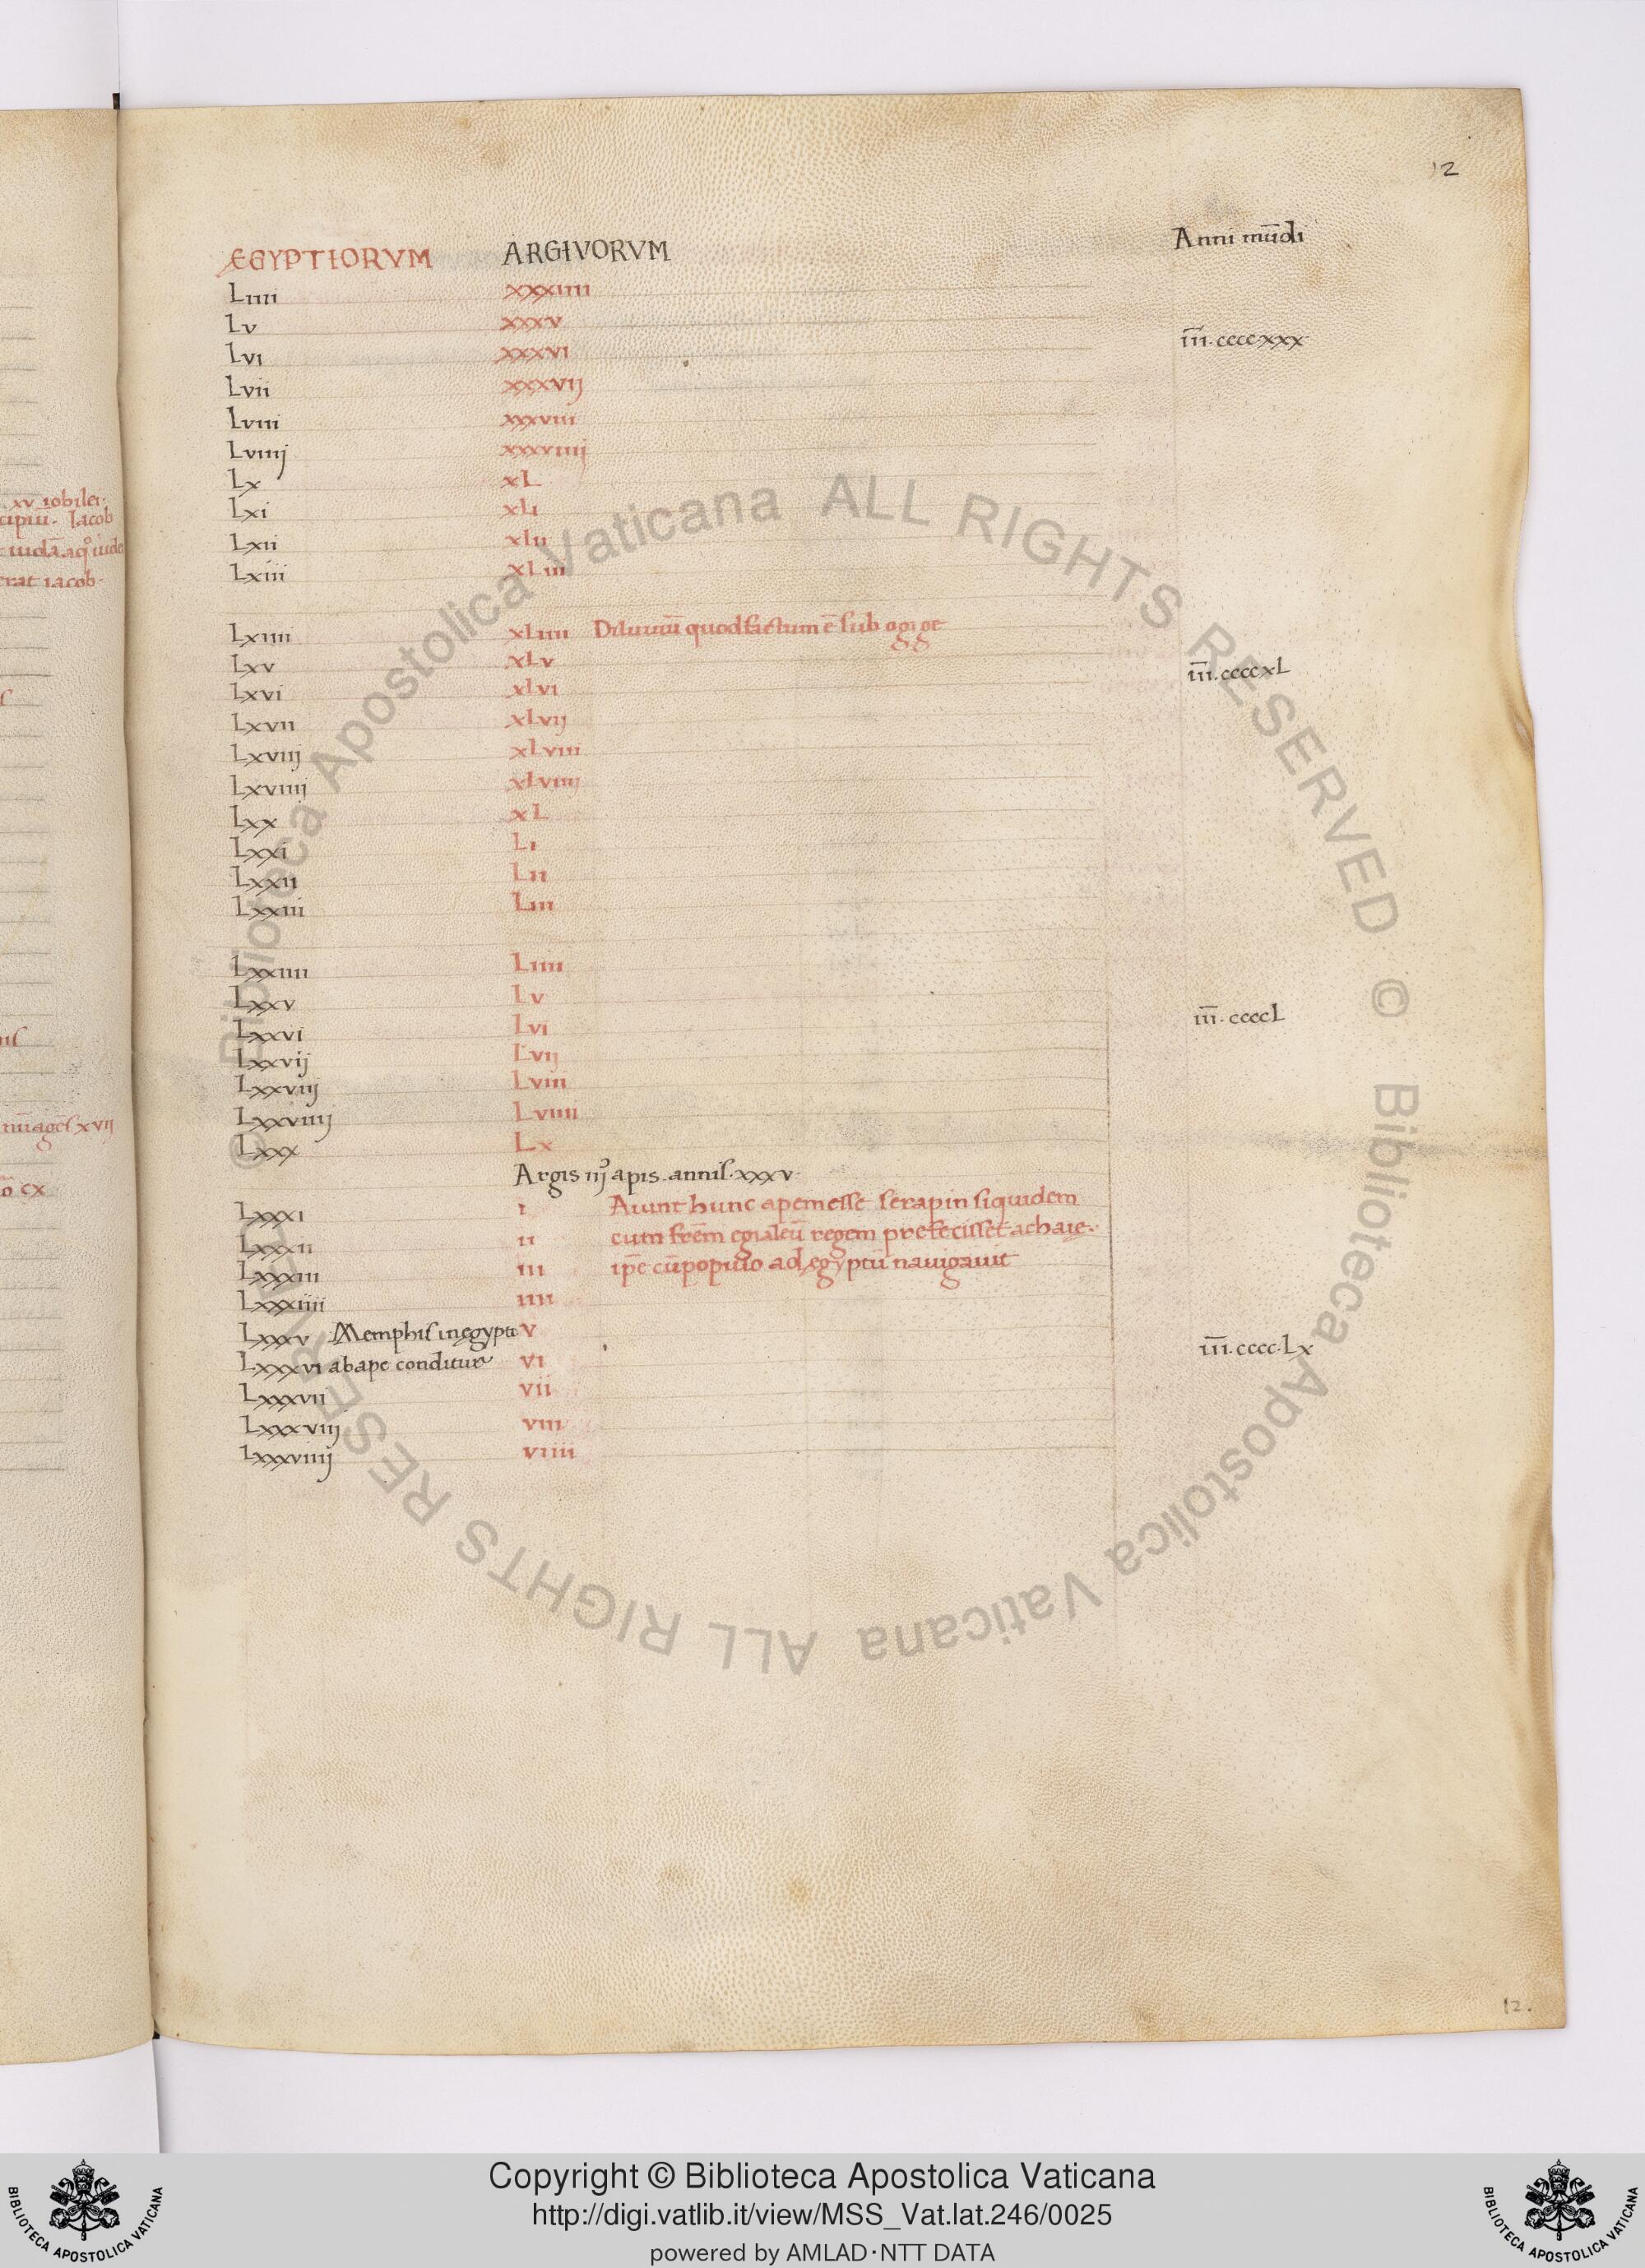 12
EGYPTIORVM ARGIVORVM Anni mūdi
Liiii xxxiiii
Lv xxxv
Lvi xxxvi īīī·ccccxxx·
Lvii xxxvij
Lviii xxxviii
Lviiij xxxviiij
Lx xL
Lxi xLi
Lxii xLii
Lxiii xLiii
Lxiiii xLiiii Diluuiū quod factum ē sub ogige
Lxv xLv īīī·ccccxL
Lxvi xLvi
Lxvii xLvij
Lxviij xLviii
Lxviiij xLviiij
Lxx xL
Lxxi Li
Lxxii Lii
Lxxiii Liii
Lxxiiii Liiii
Lxxv Lv
Lxxvi Lvi īīī·ccccL
Lxxvij Lvij
Lxxviij Lviii
Lxxviiij Lviiii
Lxxx Lx
Argis iij apis annis·xxxv·
Lxxxi i Aiunt hunc apem esse serapin siquidem
Lxxxii ii cum frēm egialeū regem prefecisset achaie·
Lxxxiii iii ipē cū popiuo ad egyptū nauigauit
Lxxxiiii iiii
Lxxxv Memphis in egypto v
Lxxxvi ab ape conditur vi īīī·cccc·Lx
Lxxxvii vii
Lxxxviij viii
Lxxxviiij viiii
xv iobilei·
cipiū· Iacob
iudā aqº iude
erat iacob·
āgēs xvij
ō cx
12.
© Biblioteca Apostolica Vaticana ALL RIGHTS RESERVED © Biblioteca Apostolica Vaticana ALL RIGHTS RESERVED
BIBLIOTECA APOSTOLICA VATICANA
Copyright © Biblioteca Apostolica Vaticana
http://digi.vatlib.it/view/MSS_Vat.lat.246/0025
powered by AMLAD·NTT DATA
BIBLIOTECA APOSTOLICA VATICANA